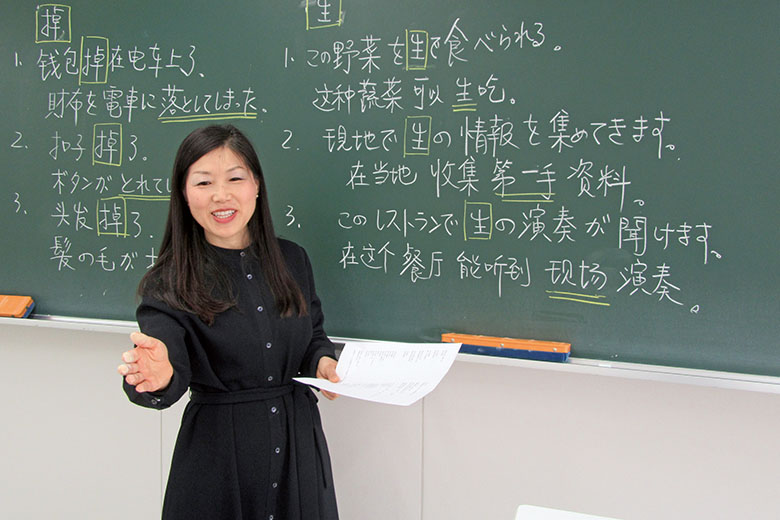 掉
1. 钱包掉在电车上了、
財布を電車に落としてしまった。
2. 扣子掉了。
ボタンがとれてい
3. 头发掉了.
髪の毛が
生
1. この野菜を生で食べられる。
这种蔬菜可以生吃。
2. 現地で生の情報を集めてきます。
在当地收集第一手资料。
3. このレストランで生の演奏が聞けます。
在这个餐厅能听到现场演奏。